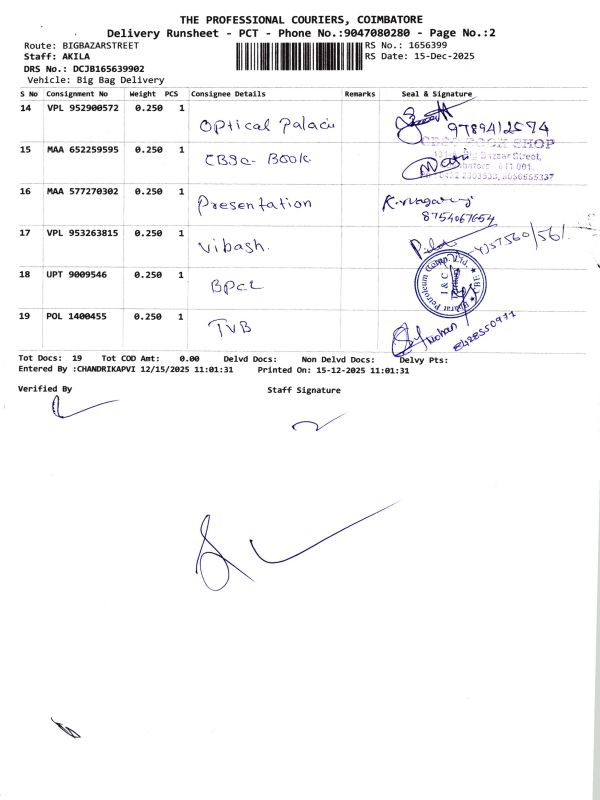 THE PROFESSIONAL COURIERS, COIMBATORE
Delivery Runsheet - PCT - Phone No.:9047080280 - Page No.:2
Route: BIGBAZARSTREET
RS No.: 1656399
Staff: AKILA
RS Date: 15-Dec-2025
DRS No.: DCJB165639902
Vehicle: Big Bag Delivery
S No Consignment No Weight PCS Consignee Details Remarks Seal & Signature
14 VPL 952900572 0.250 1 Optical Palace 9789412574
15 MAA 652259595 0.250 1 CBSC BOOK
CBSC BOOK SHOP
Bazaar Street,
16 MAA 577270302 0.250 1 Presentation
8754067654
17 VPL 953263815 0.250 1 Vibash.
18 UPT 9009546 0.250 1 BPCL
Bharat Petroleum Corpn. Ltd.
I & C
CBE
19 POL 1400455 0.250 1 TVB
Mohan
8428550971
Tot Docs: 19 Tot COD Amt: 0.00 Delvd Docs: Non Delvd Docs: Delvy Pts:
Entered By :CHANDRIKAPVI 12/15/2025 11:01:31 Printed On: 15-12-2025 11:01:31
Verified By
Staff Signature